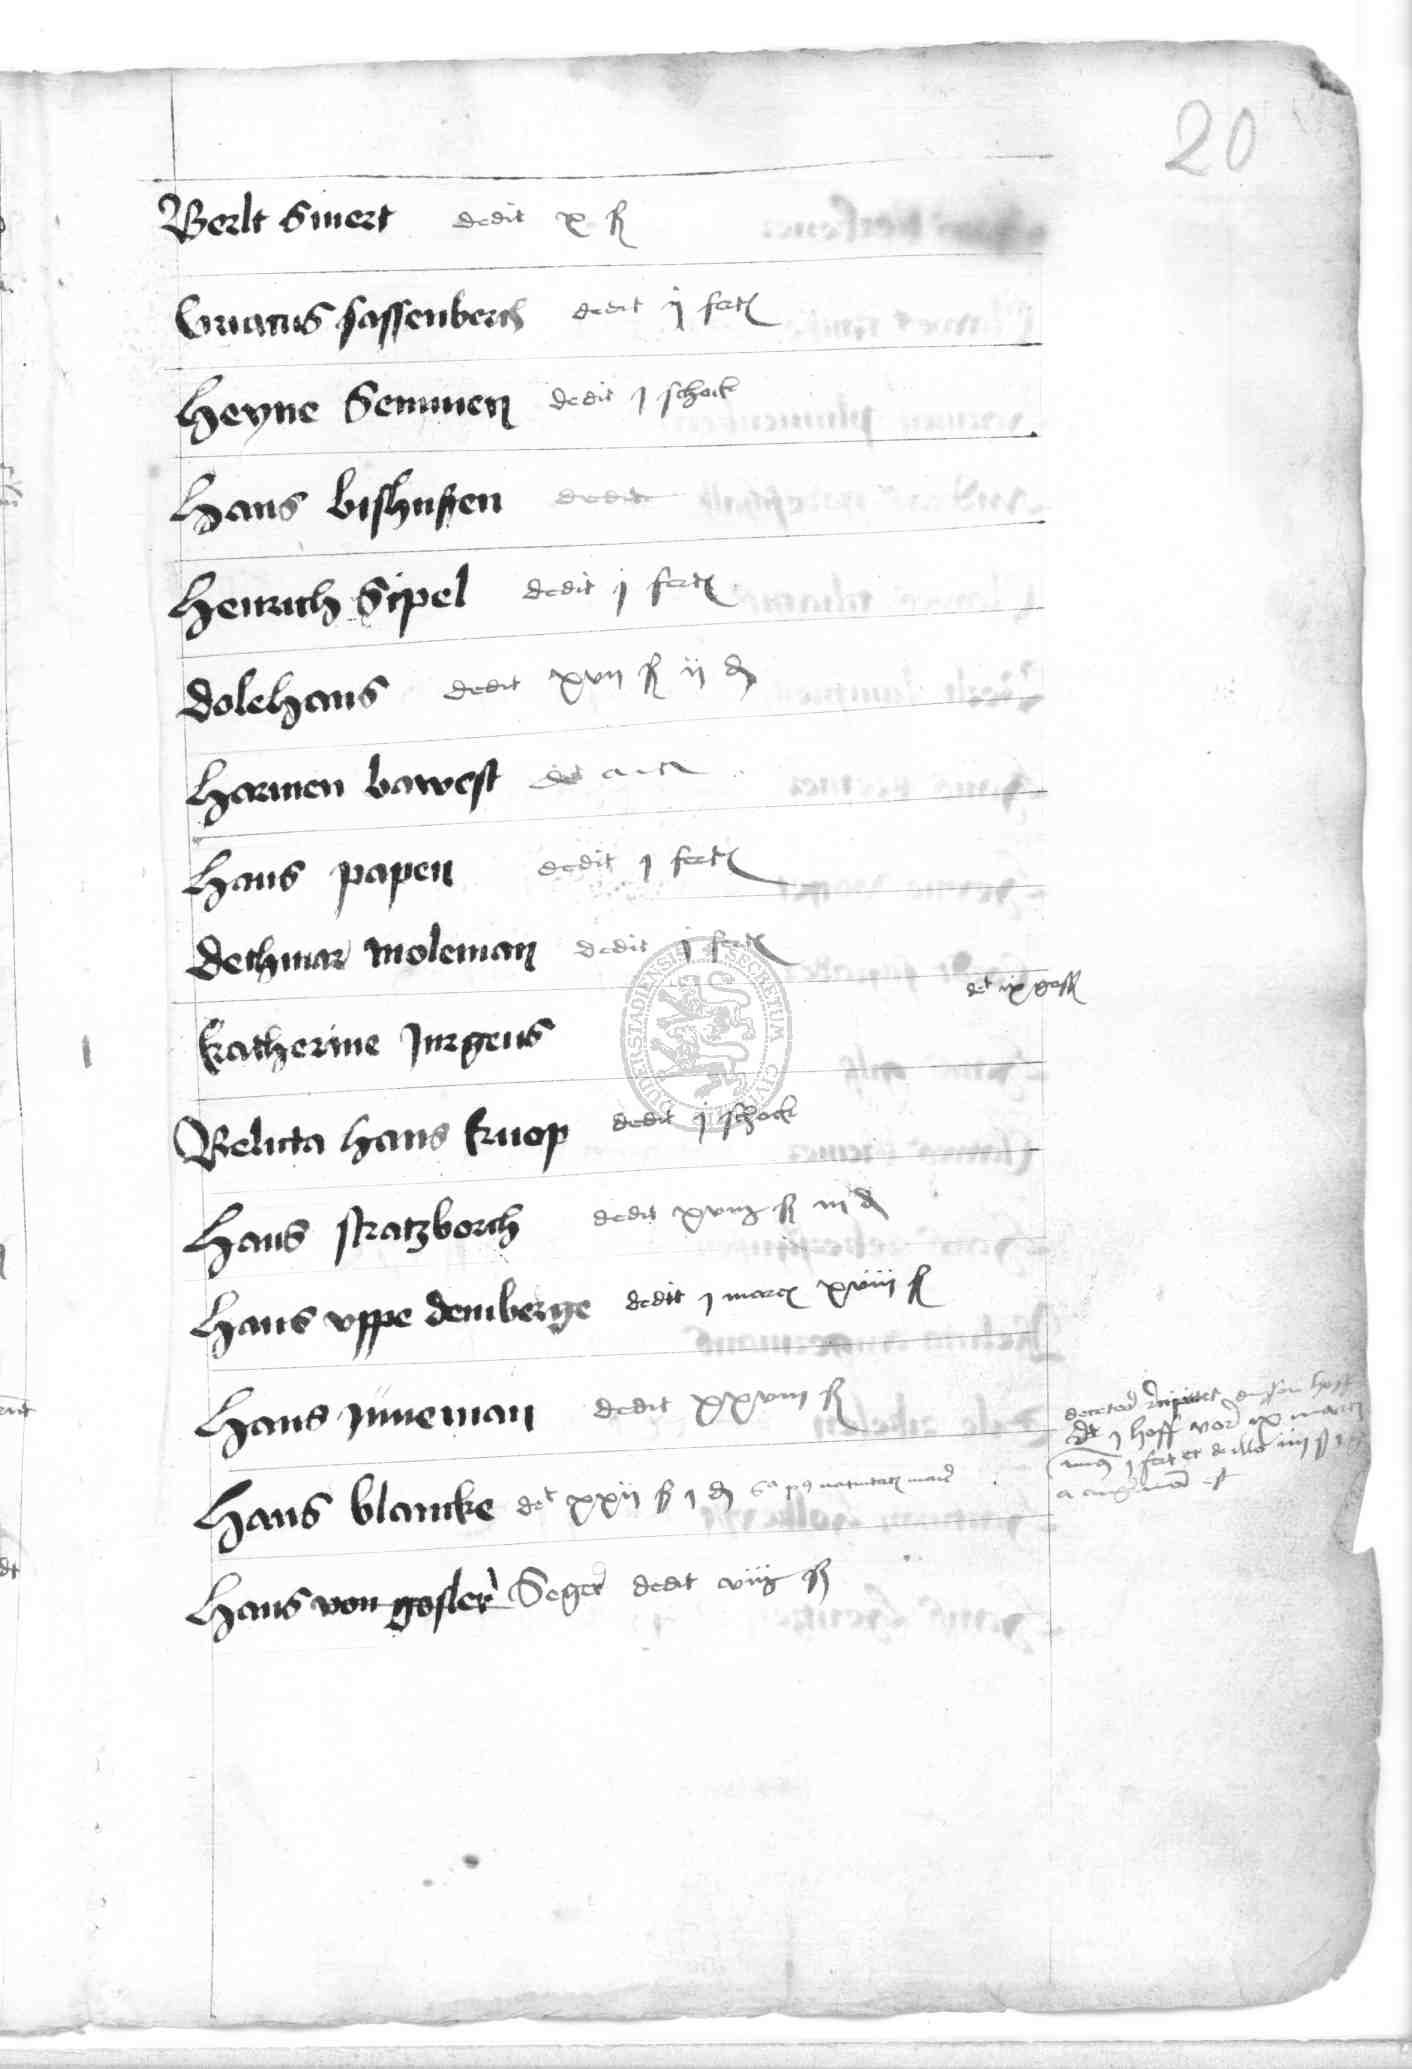 20
Berlt Sivert dedit x ß
Ciriacus sassenberch dedit ij fert
Heyne Semmen dedit j schock
Hans bishusen dedit
Henrich Sipel dedit j fert
dolehans dedit xvij ß ij d
Harmen bawest dedit
Hans papen dedit j fert
Dethmar moleman dedit j fert
det ix
Katherine Jurgens
Relicta hans knop dedit j schock
Hans stratzborch dedit xviij ß iij d
Hans uppe dem berge dedit j marc xviij ß
Hans Juneman dedit xxviij ß
j hoff vor ix marc
j fert et de illo iiij ß
Hans blancke det xxij ß j d nativitatis marie
Hans von gosler Seger dedit viij ß
DUDERSTADIENSIS SECRETUM CIVI